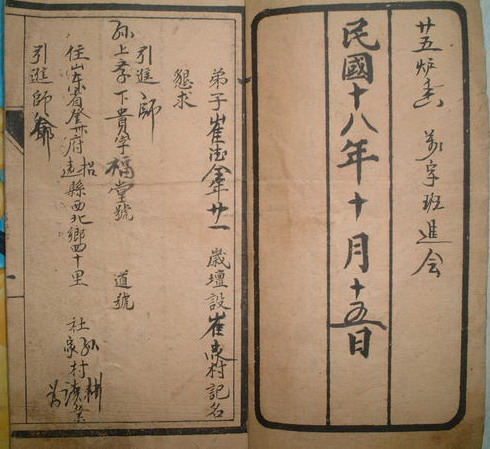 廿五炉香 萬字班進会
民國十八年十月十五日
弟子崔德全年廿一歲壇設崔家村記名
懇求
引進師
孙上孝下貴字福堂號 道號
住山東省登州府招遠縣西北鄉四十里 社孙家村 耕讀為業
引進師爺